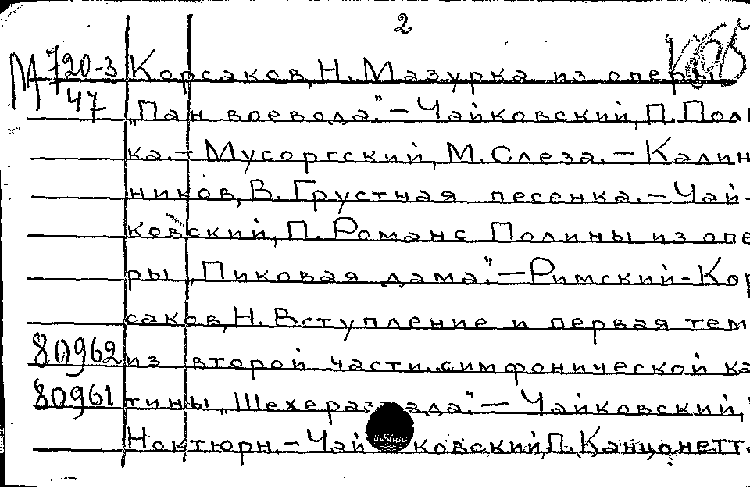 2
М 720-3 Корсаков, Н. Мазурка из оперы
47 „Пан воевода."–Чайковский, П. Поль
ка.– Мусоргский, М. Слеза.– Калин
ников, В. Грустная песенка.–Чай-
ковский, П. Романс Полины из опе
ры „Пиковая дама."–Римский-Кор
саков, Н. Вступление и первая тем
80962 из второй части симфонической ка
80961 тины „Шехеразада."– Чайковский,
Ноктюрн.–Чайковский, П. Канцонетт